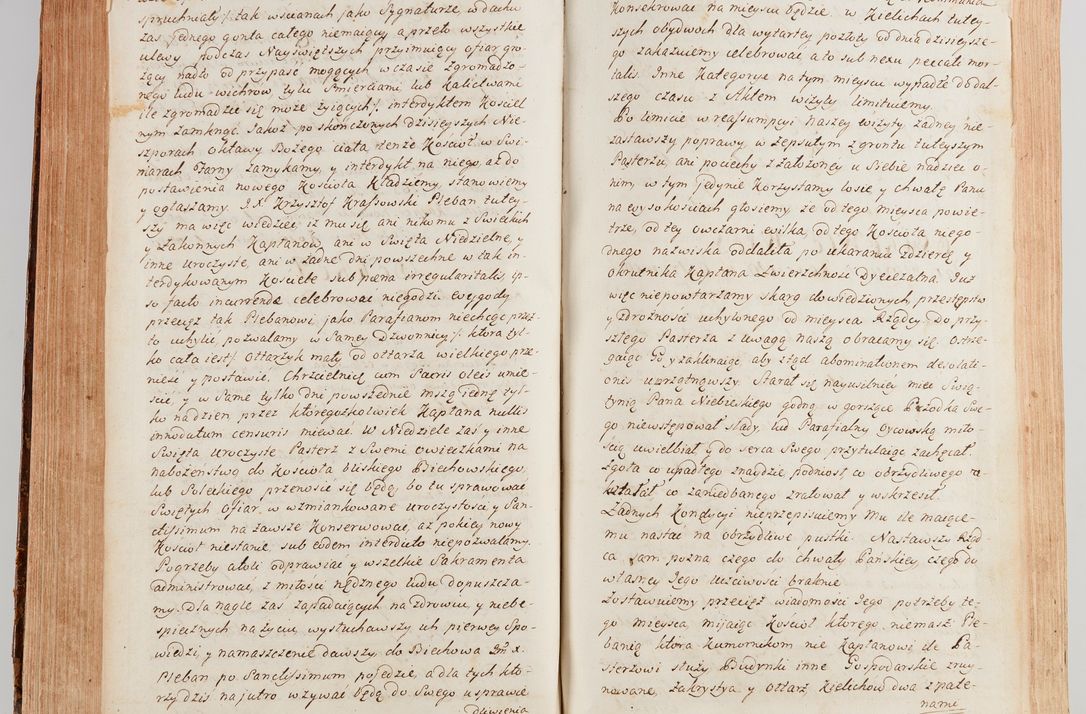 spruchniały/ tak w scianach jako Sygnaturze, w dachu
zas jednego gonta całego niemaiący a przeto wszystkie
ulewy podczas Nayswiętszych przyimuiący ofiar gro-
żący nadto od przypaść mogących w czasie zgromadzo-
nego ludu wichrow, tylu Smierciami lub Kalectwami
ile zgromadzić się może żyiących/ interdyktem Kosciel-
nym zamknąć. Jakoż po skończonych Dzisieyszych Nie-
szporach oktawy Bożego ciała tenże Kościoł w Swi-
niarach Stary zamykamy, y interdykt na niego, aż do
postawienia nowego Kościoła Kładziemy, stanowiemy
y ogłaszamy. JX. Krzysztof Krassowski Pleban tutey-
szy ma więc wiedzieć iż mu się, ani nikomu z Swieckich
y Zakonnych Kapłanow, ani w Swięta Niedzielne, y
inne Uroczyste, ani w żadne dni powszechne w tak in-
terdykowanym Kościele sub pæna irregularitatis, ip-
so facto incurrenda celebrować niegodzi. Wygody
przecięż tak Plebanowi jako Parafianom niechcąc przez
to uchylić pozwalamy w Samey Dzwonnicy/: ktora tyl-
ko cała iest/ ottarzyk mały od ottarza wielkiego prze-
nieść y postawić, Chrzcielnicę cum Sacris oleis umie-
ścić, y w Same tylko dni powszednie mszą jednę tyl-
ko na dzien, przez ktoregożkolwiek Kapłana nullis
innodatum censuris miewać. W Niedziele zaś y inne
Swięta Uroczyste Pasterz z Swemi owieczkami na
nabożeństwo do Kościoła bliskiego Biechowskiego,
lub Soleckiego przenosić się będą, bo tu sprawować
Swiętych Ofiar, w wzmiankowane uroczystości, y San-
ctissimum na zawsze Konserwować, aż pokiey nowy
Kościoł niestanie, sub eodem interdicto niepozwalamy.
Pogrzeby atoli odprawiać y wszelkie Sakramenta
administrować, z miłości nędznego ludu dopuszcza-
my. Dla nagle zas zapadaiących na zdrowiu, y niebe-
spiecznych na życiu, wysłuchawszy ich pierwey Spo-
wiedzi, y namaszczenie dawszy, do Biechowa X.
Pleban po Sanctissimum poiedzie, a dla tych kto-
rzy dziś na jutro wzywać będą do Swego usprawie
dliwienia
Konsekrować na mieyscu będzie. w Kielichach tutey-
szych obydwoch dla wytartey pozłoty od dnia dzisieysze-
go zakazuiemy celebrować, a to sub nexu peccati mor-
talis. Inne Kategorye na tym mieyscu wypadłe do dal-
szego czasu z Aktem wizyty limituiemy.
Po limicie w reassumpcyi naszey wizyty żadney nie-
zastawszy poprawy, w zepsutym z gruntu tuteyszym
Pasterzu, ani pociechy z założoney u Siebie nadziei o
nim, w tym jedynie Korzystamy losie y chwałę Panu
na wysokościach głosiemy, że od tego mieysca powie-
trze, od tey owczarni wilka, od tego Kościoła niego-
dnego nazwiska oddaliła po ukaraniu zdziercę y
okrutnika Kapłana Zwierzchność Dyecezalna. Już
więc niepowtarzamy skarg dowiedzionych przestępstw
y zdrożności uchylonego od mieysca Rządcy. Do przy-
szłego Pasterza z uwagą naszą obracamy się. Ostrze-
gaiąc Go y zaklinaiąc aby ztąd abominationem desolati-
onis uprzątnąwszy. Starał się nayusilniey mieć Swią-
tynią Pana Niebieskiego godną, w gorszące Przodka Swe-
go niewstępował slady, lud Parafialny Oycowską miło-
ścią uwielbiał y do serca Swego przytulaiąc zachęcał.
Zgoła co upadłego znaydzie podniosł, co obrzydliwego
kształał, co zaniedbanego zratował y wskrzesił.
Żadnych Kondycyi nieprzepisuiemy Mu ile maiące-
mu nastać na obrzydliwe pustki. Nastawszy Rząd-
ca, sam pozna czego do chwały Pańskiey, czego do
własney Jego uczciwości braknie.
Zostawuiemy przecięż wiadomości Jego potrzeby te-
go mieysca, mijaiąc Kościoł ktorego niemasz. Ple-
banią, ktora Kumornikom nie Kapłanowi ile Pa-
sterzowi służy. Budynki inne Gospodarskie zruy-
nowane, Zakrystya y Ottarz, Kielichow dwa z pate-
nami